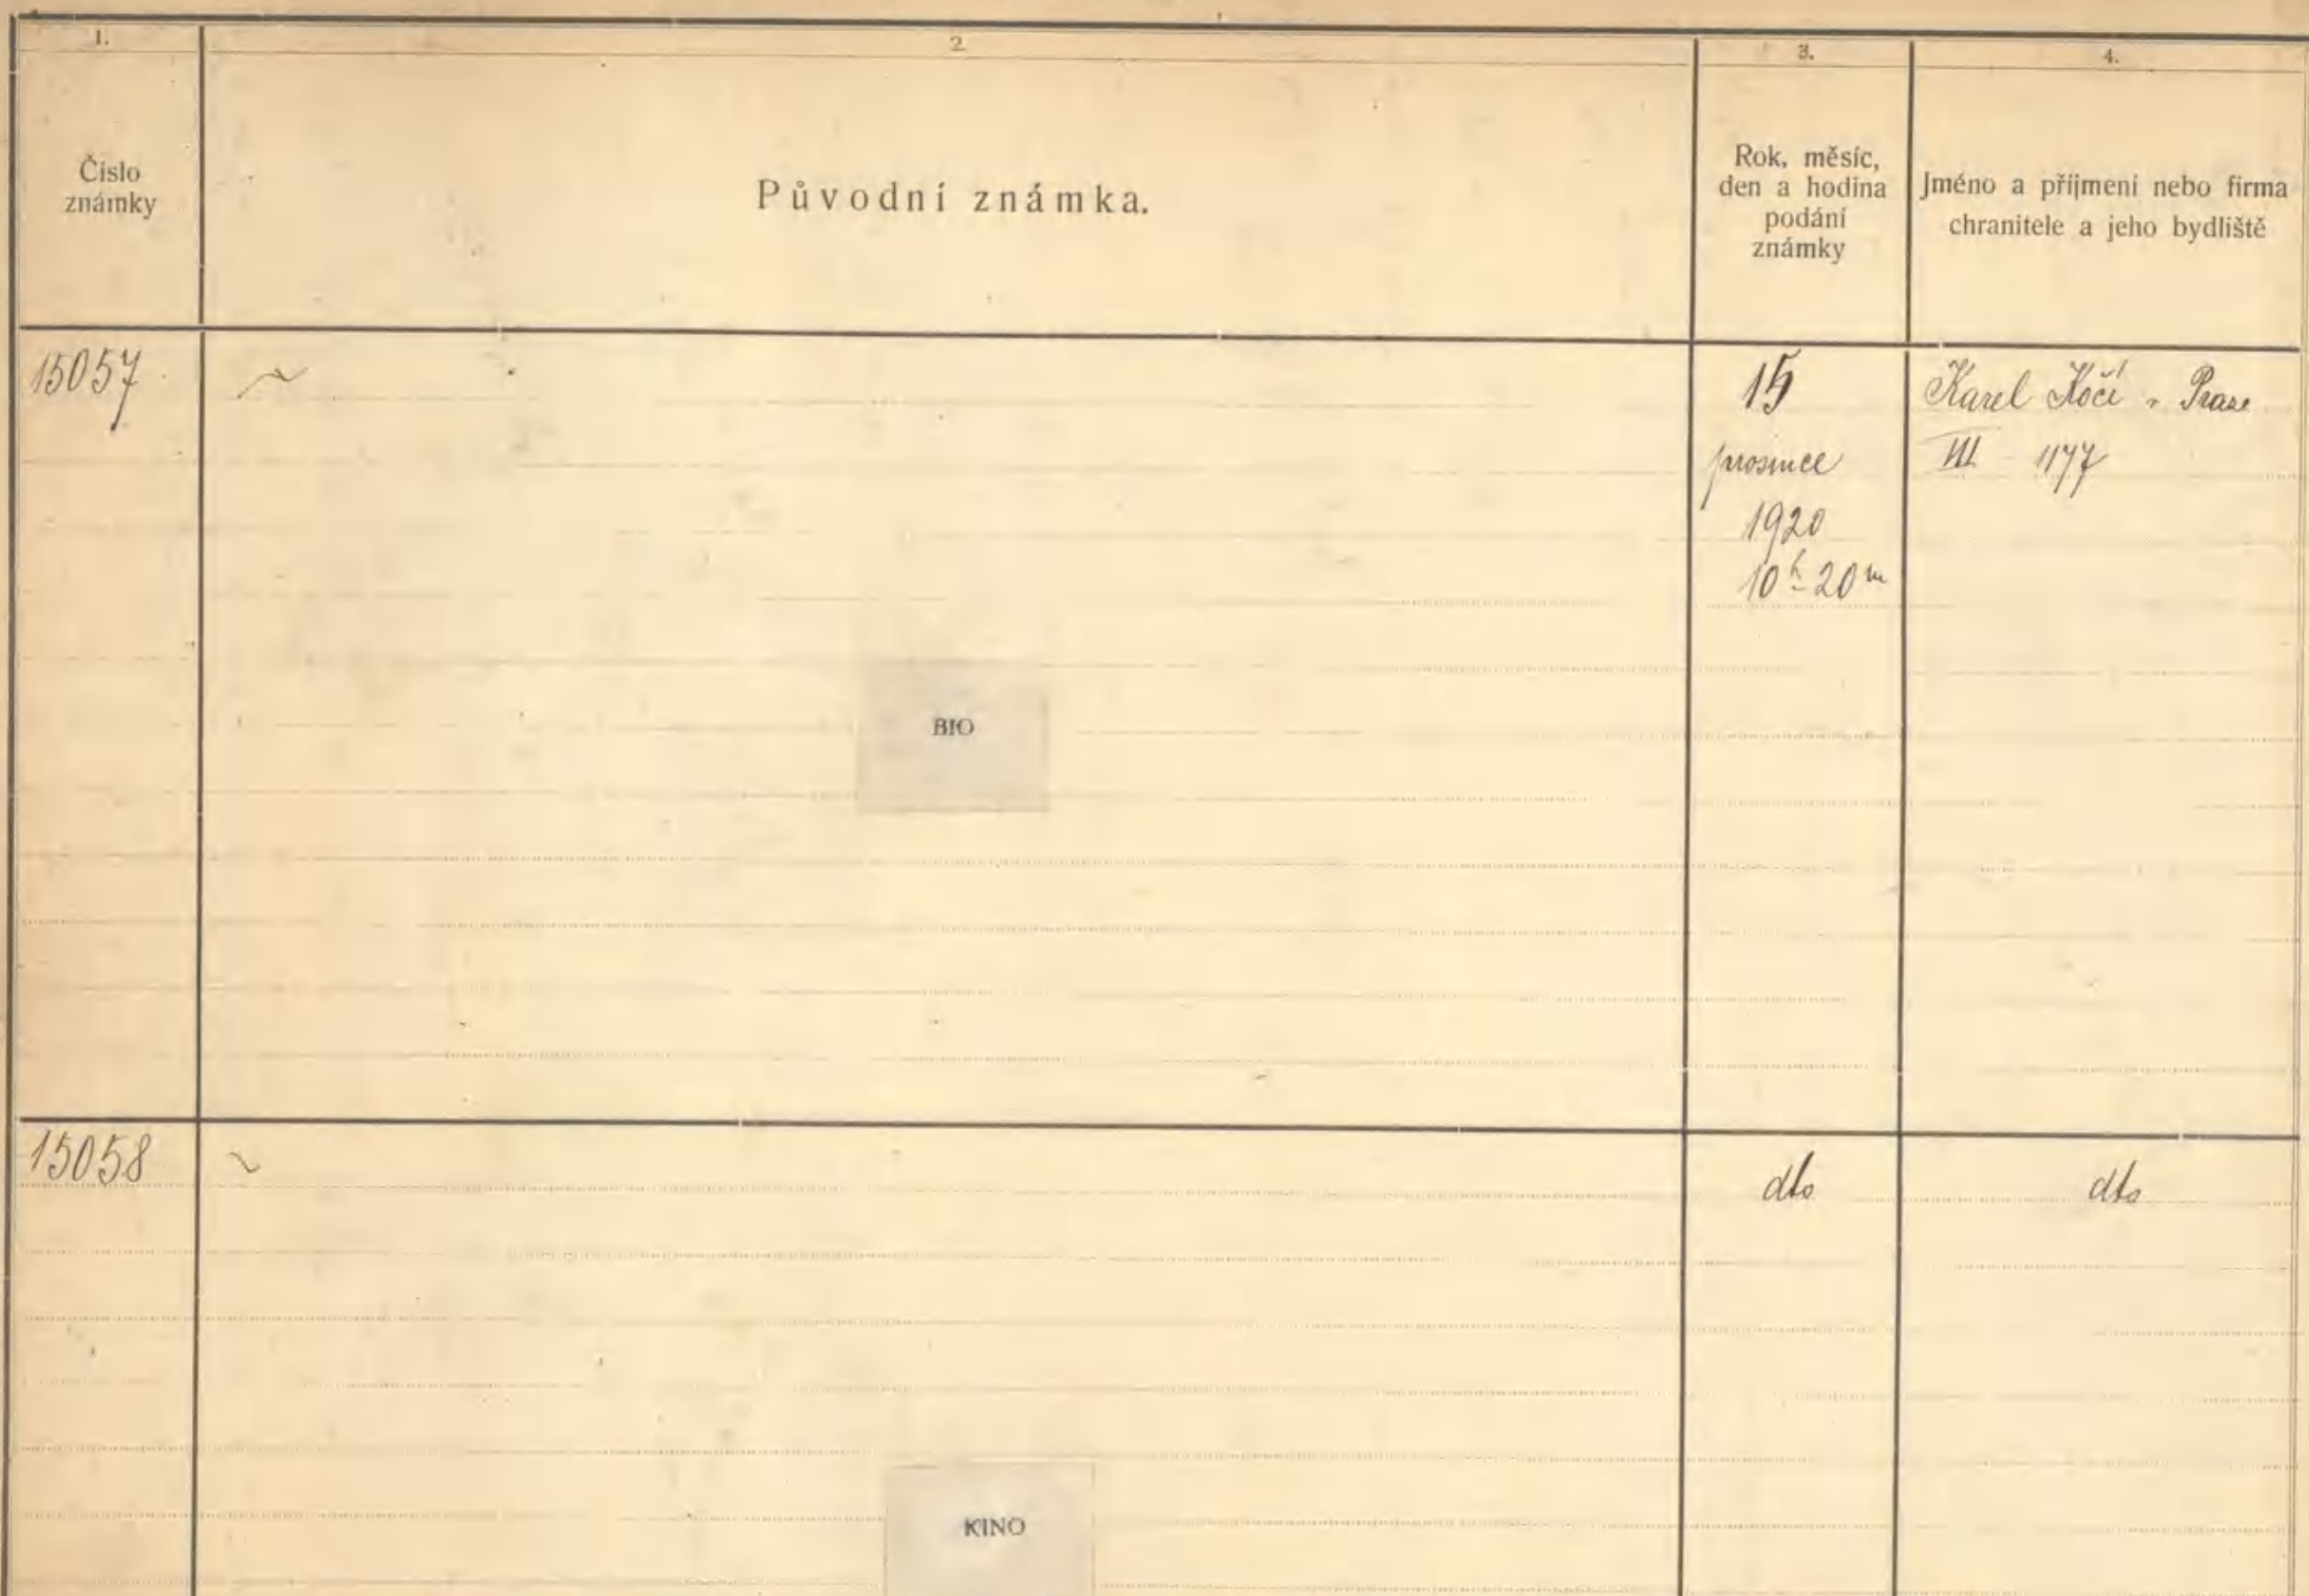 1.
2
3.
4.
Číslo
známky
Původní známka.
Rok, měsíc,
den a hodina
podání
známky
Jméno a příjmení nebo firma
chranitele a jeho bydliště
15057
15
prosince
1920
10h 20m
Karel Kočí v Praze
III 1177
BIO
15058
dto
dto
KINO